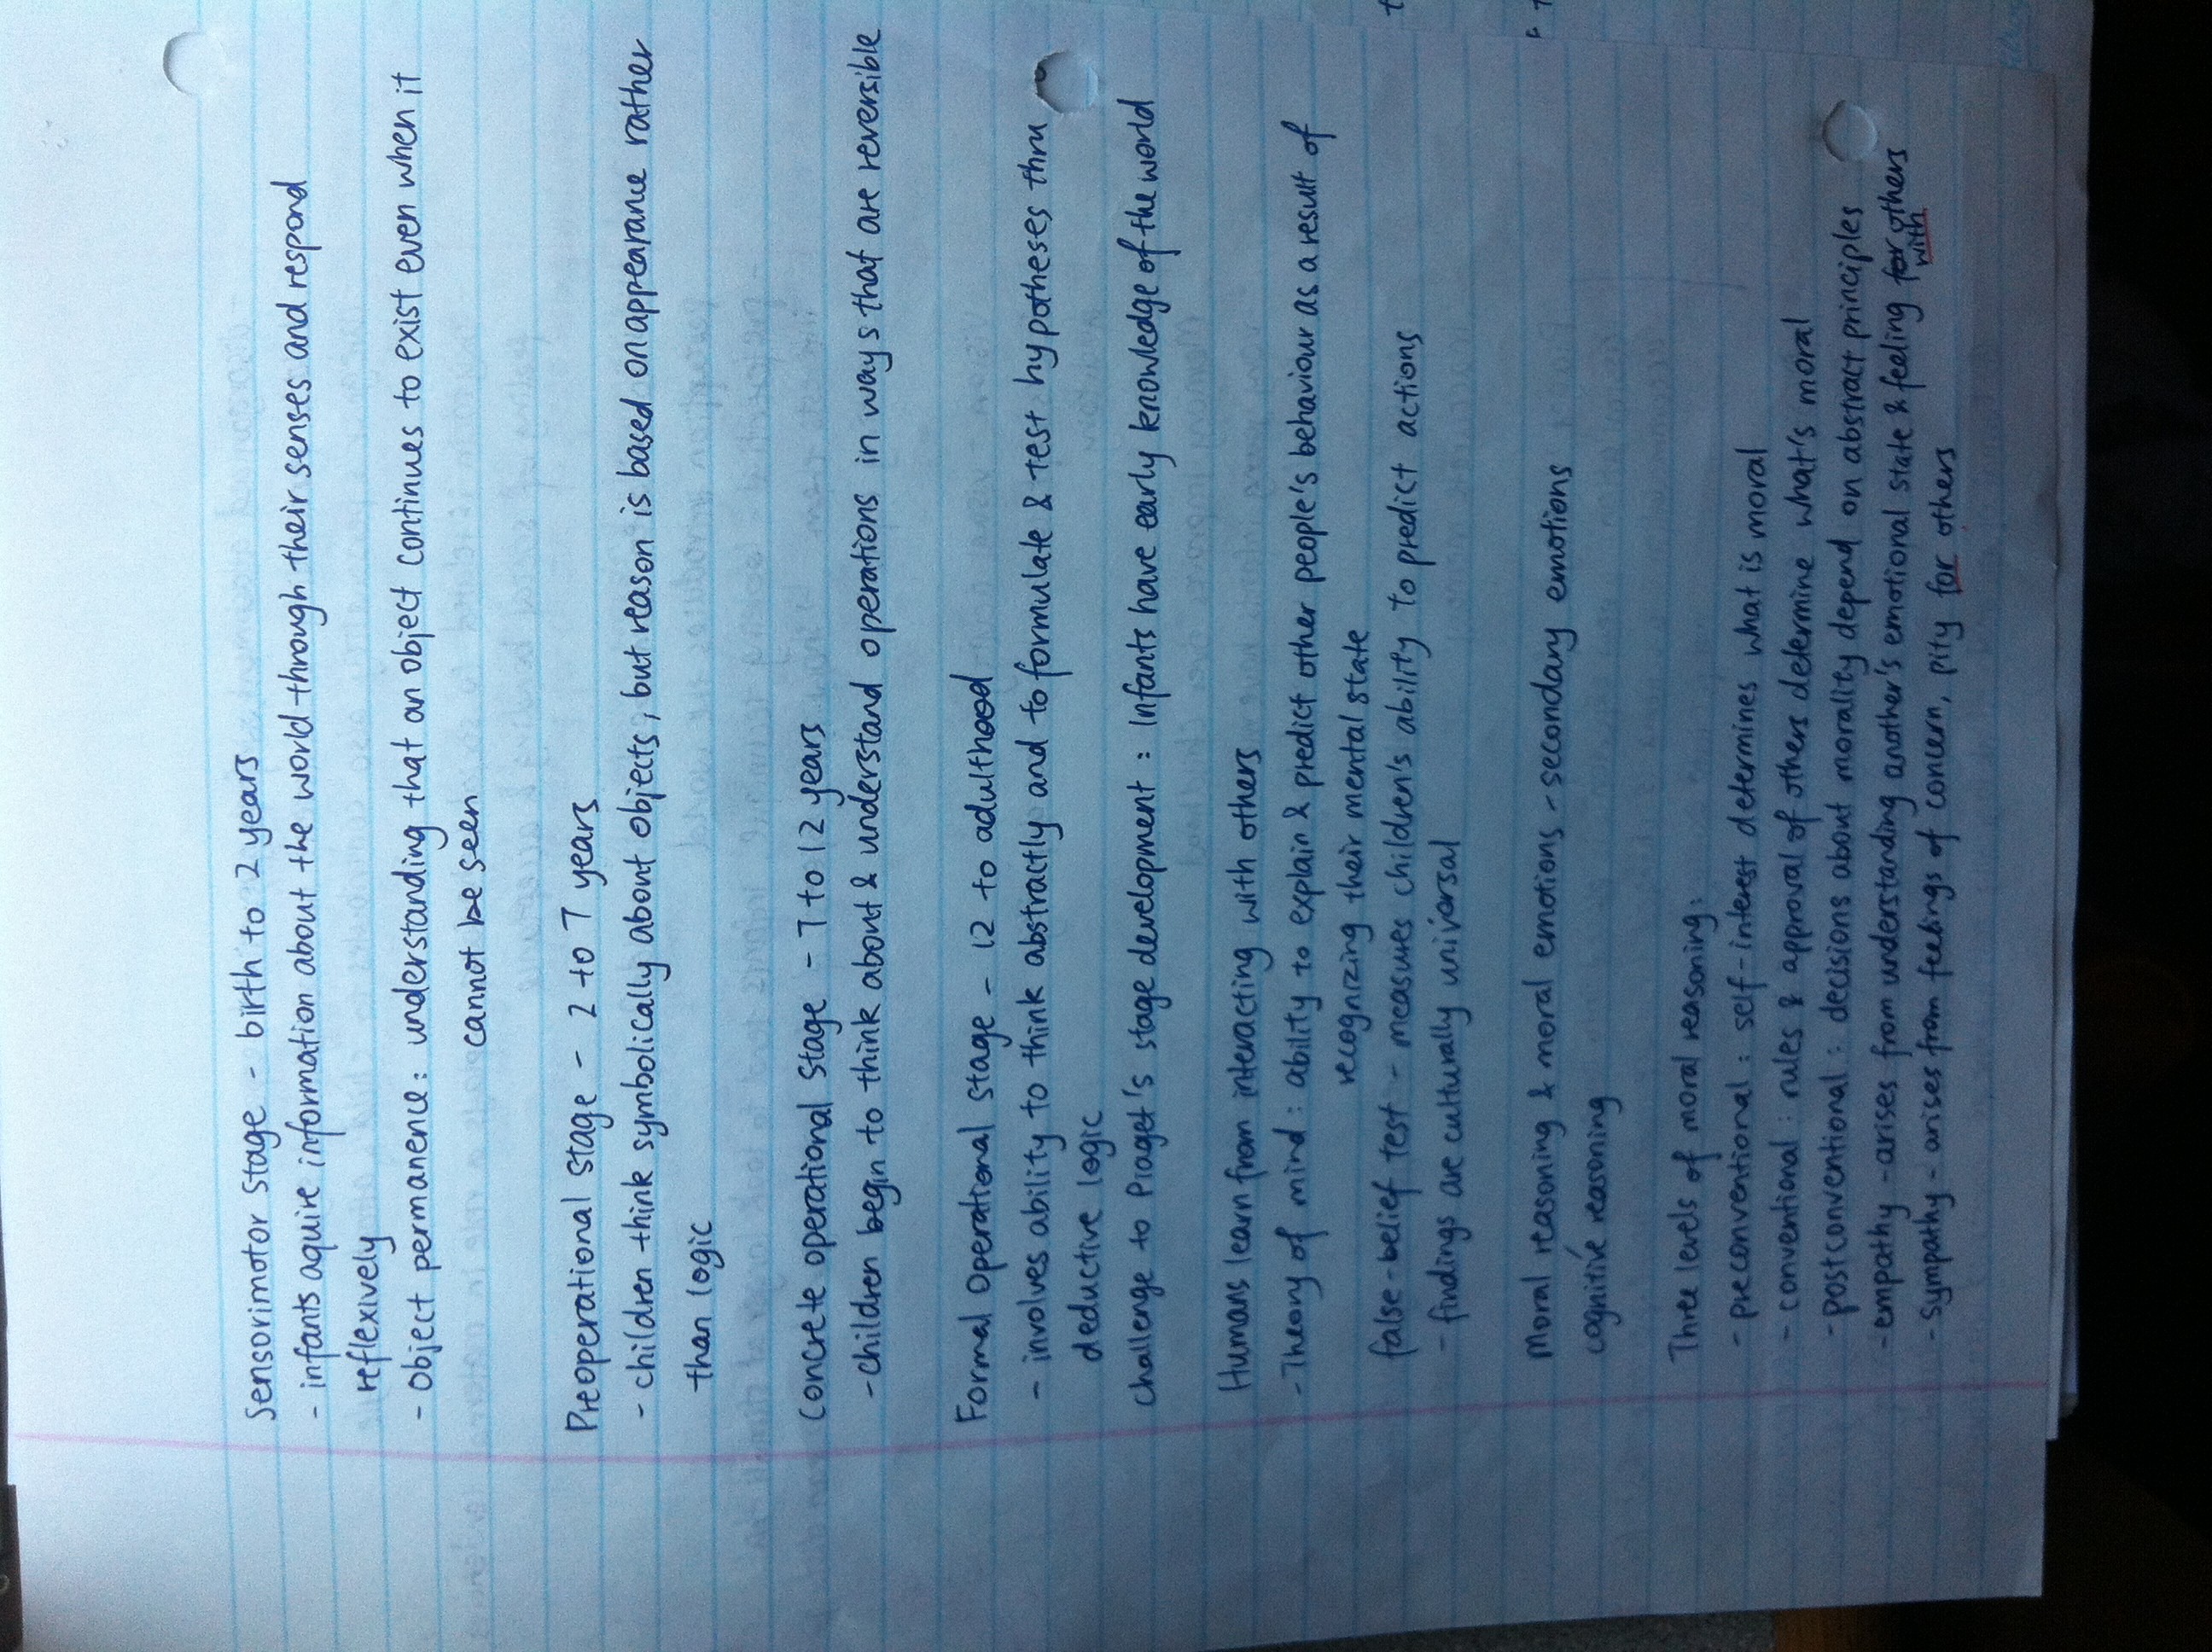 Sensorimotor Stage - birth to 2 years
- infants aquire information about the world through their senses and respond
reflexively
- Object permanence: understanding that an object continues to exist even when it
cannot be seen
Preoperational Stage - 2 to 7 years
- children think symbolically about objects, but reason is based on appearance rather
than logic
Concrete operational Stage - 7 to 12 years
- children begin to think about & understand operations in ways that are reversible
Formal Operational Stage - 12 to adulthood
- involves ability to think abstractly and to formulate & test hypotheses thru
deductive logic
Challenge to Piaget's stage development: Infants have early knowledge of the world
Humans learn from interacting with others
- Theory of mind: ability to explain & predict other people's behaviour as a result of
recognizing their mental state
false-belief test - measures children's ability to predict actions
- findings are culturally universal
Moral reasoning & moral emotions - secondary emotions
cognitive reasoning
Three levels of moral reasoning:
- preconventional: self-interest determines what is moral
- conventional: rules & approval of others determine what's moral
- postconventional: decisions about morality depend on abstract principles
- empathy - arises from understanding another's emotional state & feeling for others
with
- Sympathy - arises from feelings of concern, pity for others